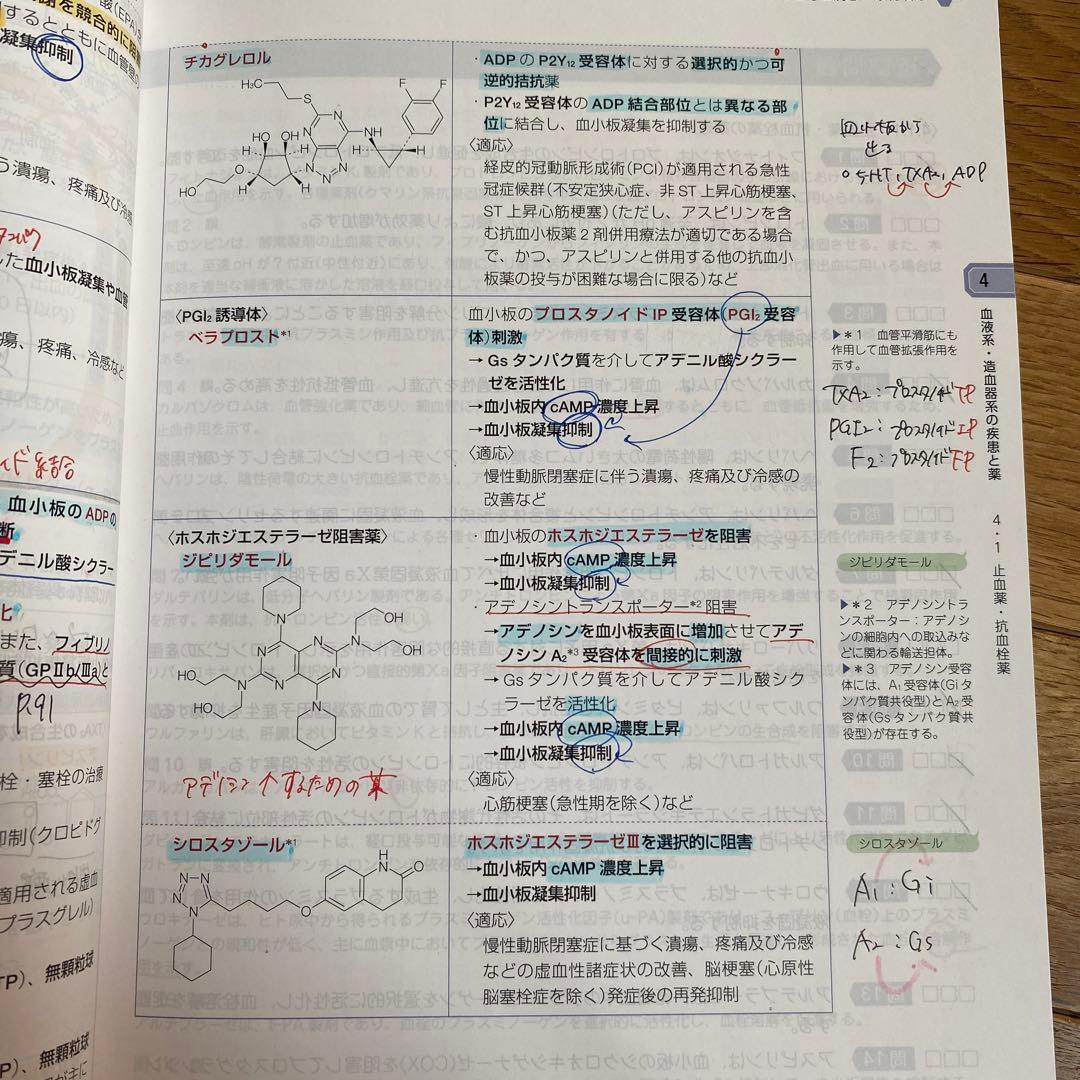 酸(EPA)
を競合的に阻
するとともに血管
凝集抑制
う潰瘍、疼痛及び冷
した血小板凝集や血管
瘍、疼痛、冷感など
結合
血小板の ADP の
断
デニル酸シクラー
化
また、フィブリノ
質(GPⅡb/Ⅲa)と
P.91
栓・塞栓の治療
抑制(クロピドグ
適用される虚血
プラスグレル)
TP)、無顆粒球
P)、無顆粒球
チカグレロル
H₃C
S
F
F
N
N
NH
HO
OH
H
H
H
H
N
N
N
HO
O
・ADP の P2Y₁₂ 受容体に対する選択的かつ可
逆的拮抗薬
・P2Y₁₂ 受容体の ADP 結合部位とは異なる部
位に結合し、血小板凝集を抑制する
〈適応〉
経皮的冠動脈形成術(PCI)が適用される急性
冠症候群(不安定狭心症、非 ST 上昇心筋梗塞、
ST 上昇心筋梗塞)(ただし、アスピリンを含
む抗血小板薬 2 剤併用療法が適切である場合
で、かつ、アスピリンと併用する他の抗血小
板薬の投与が困難な場合に限る)など
〈PGI₂ 誘導体〉
ベラプロスト*¹
血小板のプロスタノイド IP 受容体(PGI₂ 受容
体)刺激
→ Gs タンパク質を介してアデニル酸シクラー
ゼを活性化
→血小板内 cAMP 濃度上昇
→血小板凝集抑制
〈適応〉
慢性動脈閉塞症に伴う潰瘍、疼痛及び冷感の
改善など
〈ホスホジエステラーゼ阻害薬〉
ジピリダモール
N
OH
N
N
N
OH
HO
N
N
N
HO
N
アデノシン↑するための薬
・血小板のホスホジエステラーゼを阻害
→血小板内 cAMP 濃度上昇
→血小板凝集抑制
・アデノシントランスポーター*² 阻害
→アデノシンを血小板表面に増加させてアデ
ノシン A₂*³ 受容体を間接的に刺激
→ Gs タンパク質を介してアデニル酸シク
ラーゼを活性化
→血小板内 cAMP 濃度上昇
→血小板凝集抑制
〈適応〉
心筋梗塞(急性期を除く)など
シロスタゾール*¹
N
N
N
N
O
H
N
O
ホスホジエステラーゼⅢを選択的に阻害
→血小板内 cAMP 濃度上昇
→血小板凝集抑制
〈適応〉
慢性動脈閉塞症に基づく潰瘍、疼痛及び冷感
などの虚血性諸症状の改善、脳梗塞(心原性
脳塞栓症を除く)発症後の再発抑制
血小板から
出る
○ 5HT, TXA₂, ADP
4
血液系・造血器系の疾患と薬
4・1 止血薬・抗血栓薬
▶*1 血管平滑筋にも
作用して血管拡張作用を
示す。
TXA₂:プロスタノイドTP
PGI₂:プロスタノイドIP
F₂:プロスタノイドFP
ジピリダモール
▶*2 アデノシントラ
ンスポーター:アデノシ
ンの細胞内への取込みな
どに関わる輸送担体。
▶*3 アデノシン受容
体には、A₁ 受容体(Gi タ
ンパク質共役型)と A₂ 受
容体(Gs タンパク質共
役型)が存在する。
シロスタゾール
A₁:Gi
A₂:Gs